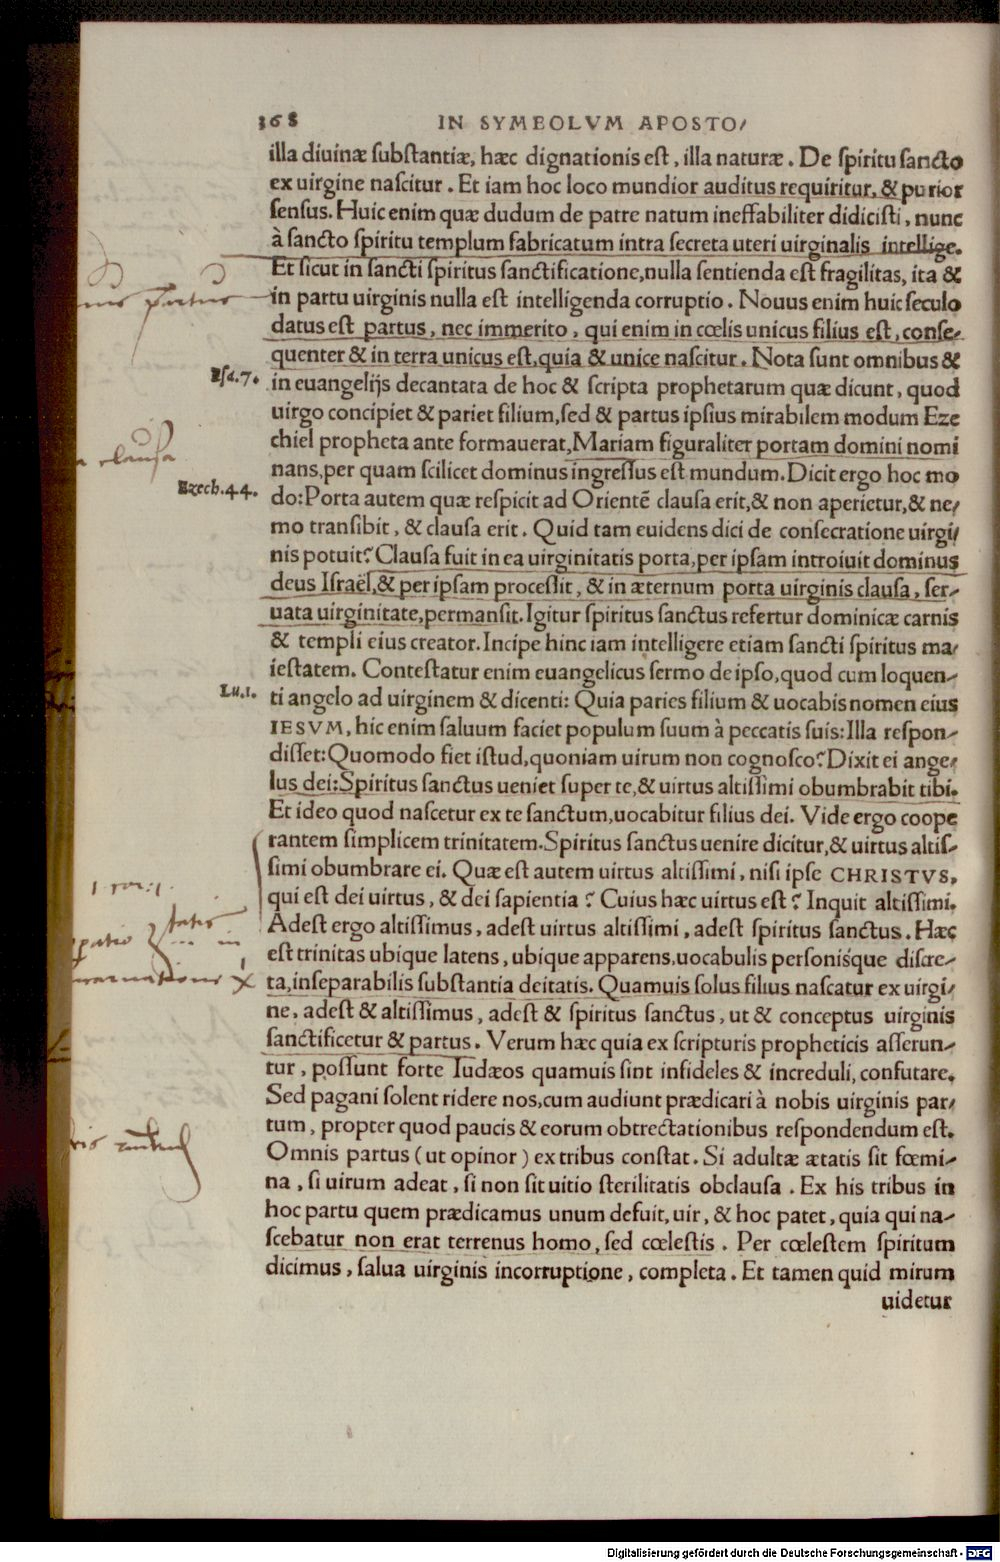 368 IN SYMBOLVM APOSTO/
illa diuinæ substantiæ, hæc dignationis est, illa naturæ. De spiritu sancto
ex uirgine nascitur. Et iam hoc loco mundior auditus requiritur, & purior
sensus. Huic enim quæ dudum de patre natum ineffabiliter didicisti, nunc
à sancto spiritu templum fabricatum intra secreta uteri uirginalis intellige.
Et sicut in sancti spiritus sanctificatione, nulla sentienda est fragilitas, ita &
in partu uirginis nulla est intelligenda corruptio. Nouus enim huic seculo
datus est partus, nec immerito, qui enim in cœlis unicus filius est, conse-
quenter & in terra unicus est, quia & unice nascitur. Nota sunt omnibus &
Esa.7.
in euangelijs decantata de hoc & scripta prophetarum quæ dicunt, quod
uirgo concipiet & pariet filium, sed & partus ipsius mirabilem modum Eze
chiel propheta ante formauerat, Mariam figuraliter portam domini nomi
clausa
nans, per quam scilicet dominus ingressus est mundum. Dicit ergo hoc mo
Ezech.44.
do: Porta autem quæ respicit ad Orientē clausa erit, & non aperietur, & ne/
mo transibit, & clausa erit. Quid tam euidens dici de consecratione uirgi/
nis potuit? Clausa fuit in ea uirginitatis porta, per ipsam introiuit dominus
deus Israël, & per ipsam processit, & in æternum porta uirginis clausa, ser-
uata uirginitate, permansit. Igitur spiritus sanctus refertur dominicæ carnis
& templi eius creator. Incipe hinc iam intelligere etiam sancti spiritus ma/
iestatem. Contestatur enim euangelicus sermo de ipso, quod cum loquen-
Lu.1.
ti angelo ad uirginem & dicenti: Quia paries filium & uocabis nomen eius
IESVM, hic enim saluum faciet populum suum à peccatis suis: Illa respon-
disset: Quomodo fiet istud, quoniam uirum non cognosco? Dixit ei ange/
lus dei: Spiritus sanctus ueniet super te, & uirtus altissimi obumbrabit tibi.
Et ideo quod nascetur ex te sanctum, uocabitur filius dei. Vide ergo coope
rantem simplicem trinitatem. Spiritus sanctus uenire dicitur, & uirtus altis-
simi obumbrare ei. Quæ est autem uirtus altissimi, nisi ipse CHRISTVS,
qui est dei uirtus, & dei sapientia? Cuius hæc uirtus est? Inquit altissimi.
Adest ergo altissimus, adest uirtus altissimi, adest spiritus sanctus. Hæc
est trinitas ubique latens, ubique apparens, uocabulis personisque discre-
ta, inseparabilis substantia deitatis. Quamuis solus filius nascatur ex uirgi/
ne, adest & altissimus, adest & spiritus sanctus, ut & conceptus uirginis
sanctificetur & partus. Verum hæc quia ex scripturis propheticis asserun-
tur, possunt forte Iudæos quamuis sint infideles & increduli, confutare.
Sed pagani solent ridere nos, cum audiunt prædicari à nobis uirginis par/
tum, propter quod paucis & eorum obtrectationibus respondendum est.
Omnis partus (ut opinor) ex tribus constat. Si adultæ ætatis sit fœmi-
na, si uirum adeat, si non sit uitio sterilitatis obclausa. Ex his tribus in
hoc partu quem prædicamus unum defuit, uir, & hoc patet, quia qui na-
scebatur non erat terrenus homo, sed cœlestis. Per cœlestem spiritum
dicimus, salua uirginis incorruptione, completa. Et tamen quid mirum
uidetur
Digitalisierung gefördert durch die Deutsche Forschungsgemeinschaft - DFG